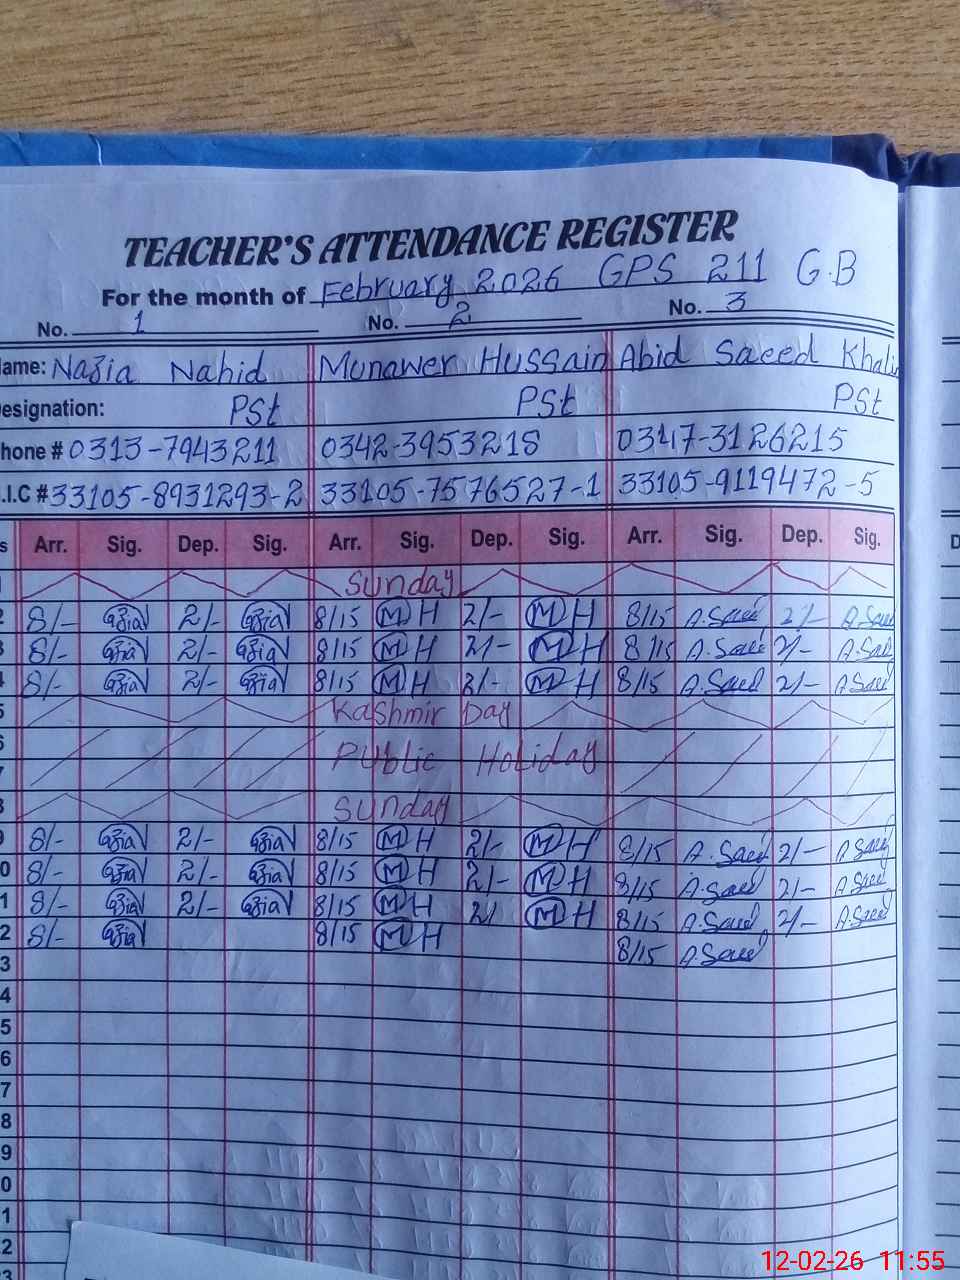 TEACHER'S ATTENDANCE REGISTER
For the month of February 2026 GPS 211 G.B
No. 1 No. 2 No. 3
ame: Nazia Nahid Munawer Hussain Abid Saeed Khali
esignation: PSt PSt PSt
hone # 0313-7943211 0342-3953218 0347-3126215
.I.C # 33105-8931293-2 33105-7576527-1 33105-9119472-5
s Arr. Sig. Dep. Sig. Arr. Sig. Dep. Sig. Arr. Sig. Dep. Sig.
Sunday
2 8/- 2/- 8/15 MH 2/- MH 8/15 A.Saeed 2/- A.Saeed
3 8/- 2/- 8/15 MH 2/- MH 8/15 A.Saeed 2/- A.Saeed
4 8/- 2/- 8/15 MH 2/- MH 8/15 A.Saeed 2/- A.Saeed
5 Kashmir Day
6 Public Holiday
7
8 Sunday
9 8/- 2/- 8/15 MH 2/- MH 8/15 A.Saeed 2/- A.Saeed
0 8/- 2/- 8/15 MH 2/- MH 8/15 A.Saeed 2/- A.Saeed
1 8/- 2/- 8/15 MH 2/ MH 8/15 A.Saeed 2/- A.Saeed
2 8/- 8/15 MH 8/15 A.Saeed
3
4
5
6
7
8
9
0
1
2
3
D
12-02-26 11:55